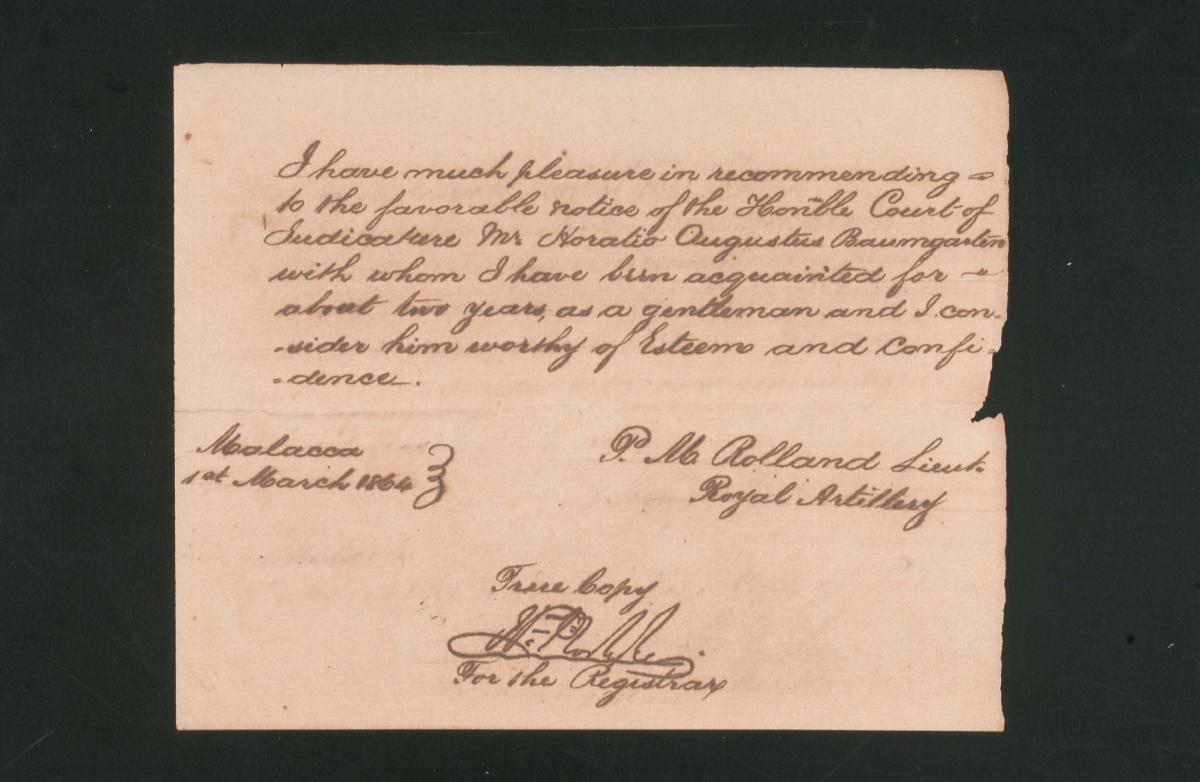 I have much pleasure in recommending =
to the favorable notice of the Hon'ble Court of
Judicature Mr. Horatio Augustus Baumgarten
with whom I have been acquainted for =
about two years, as a gentleman and I con-
-sider him worthy of Esteem and Confi-
-dence.
Malacca
1st March 1864
P. M. Rolland Lieut.
Royal Artillery
True Copy
For the Registrar